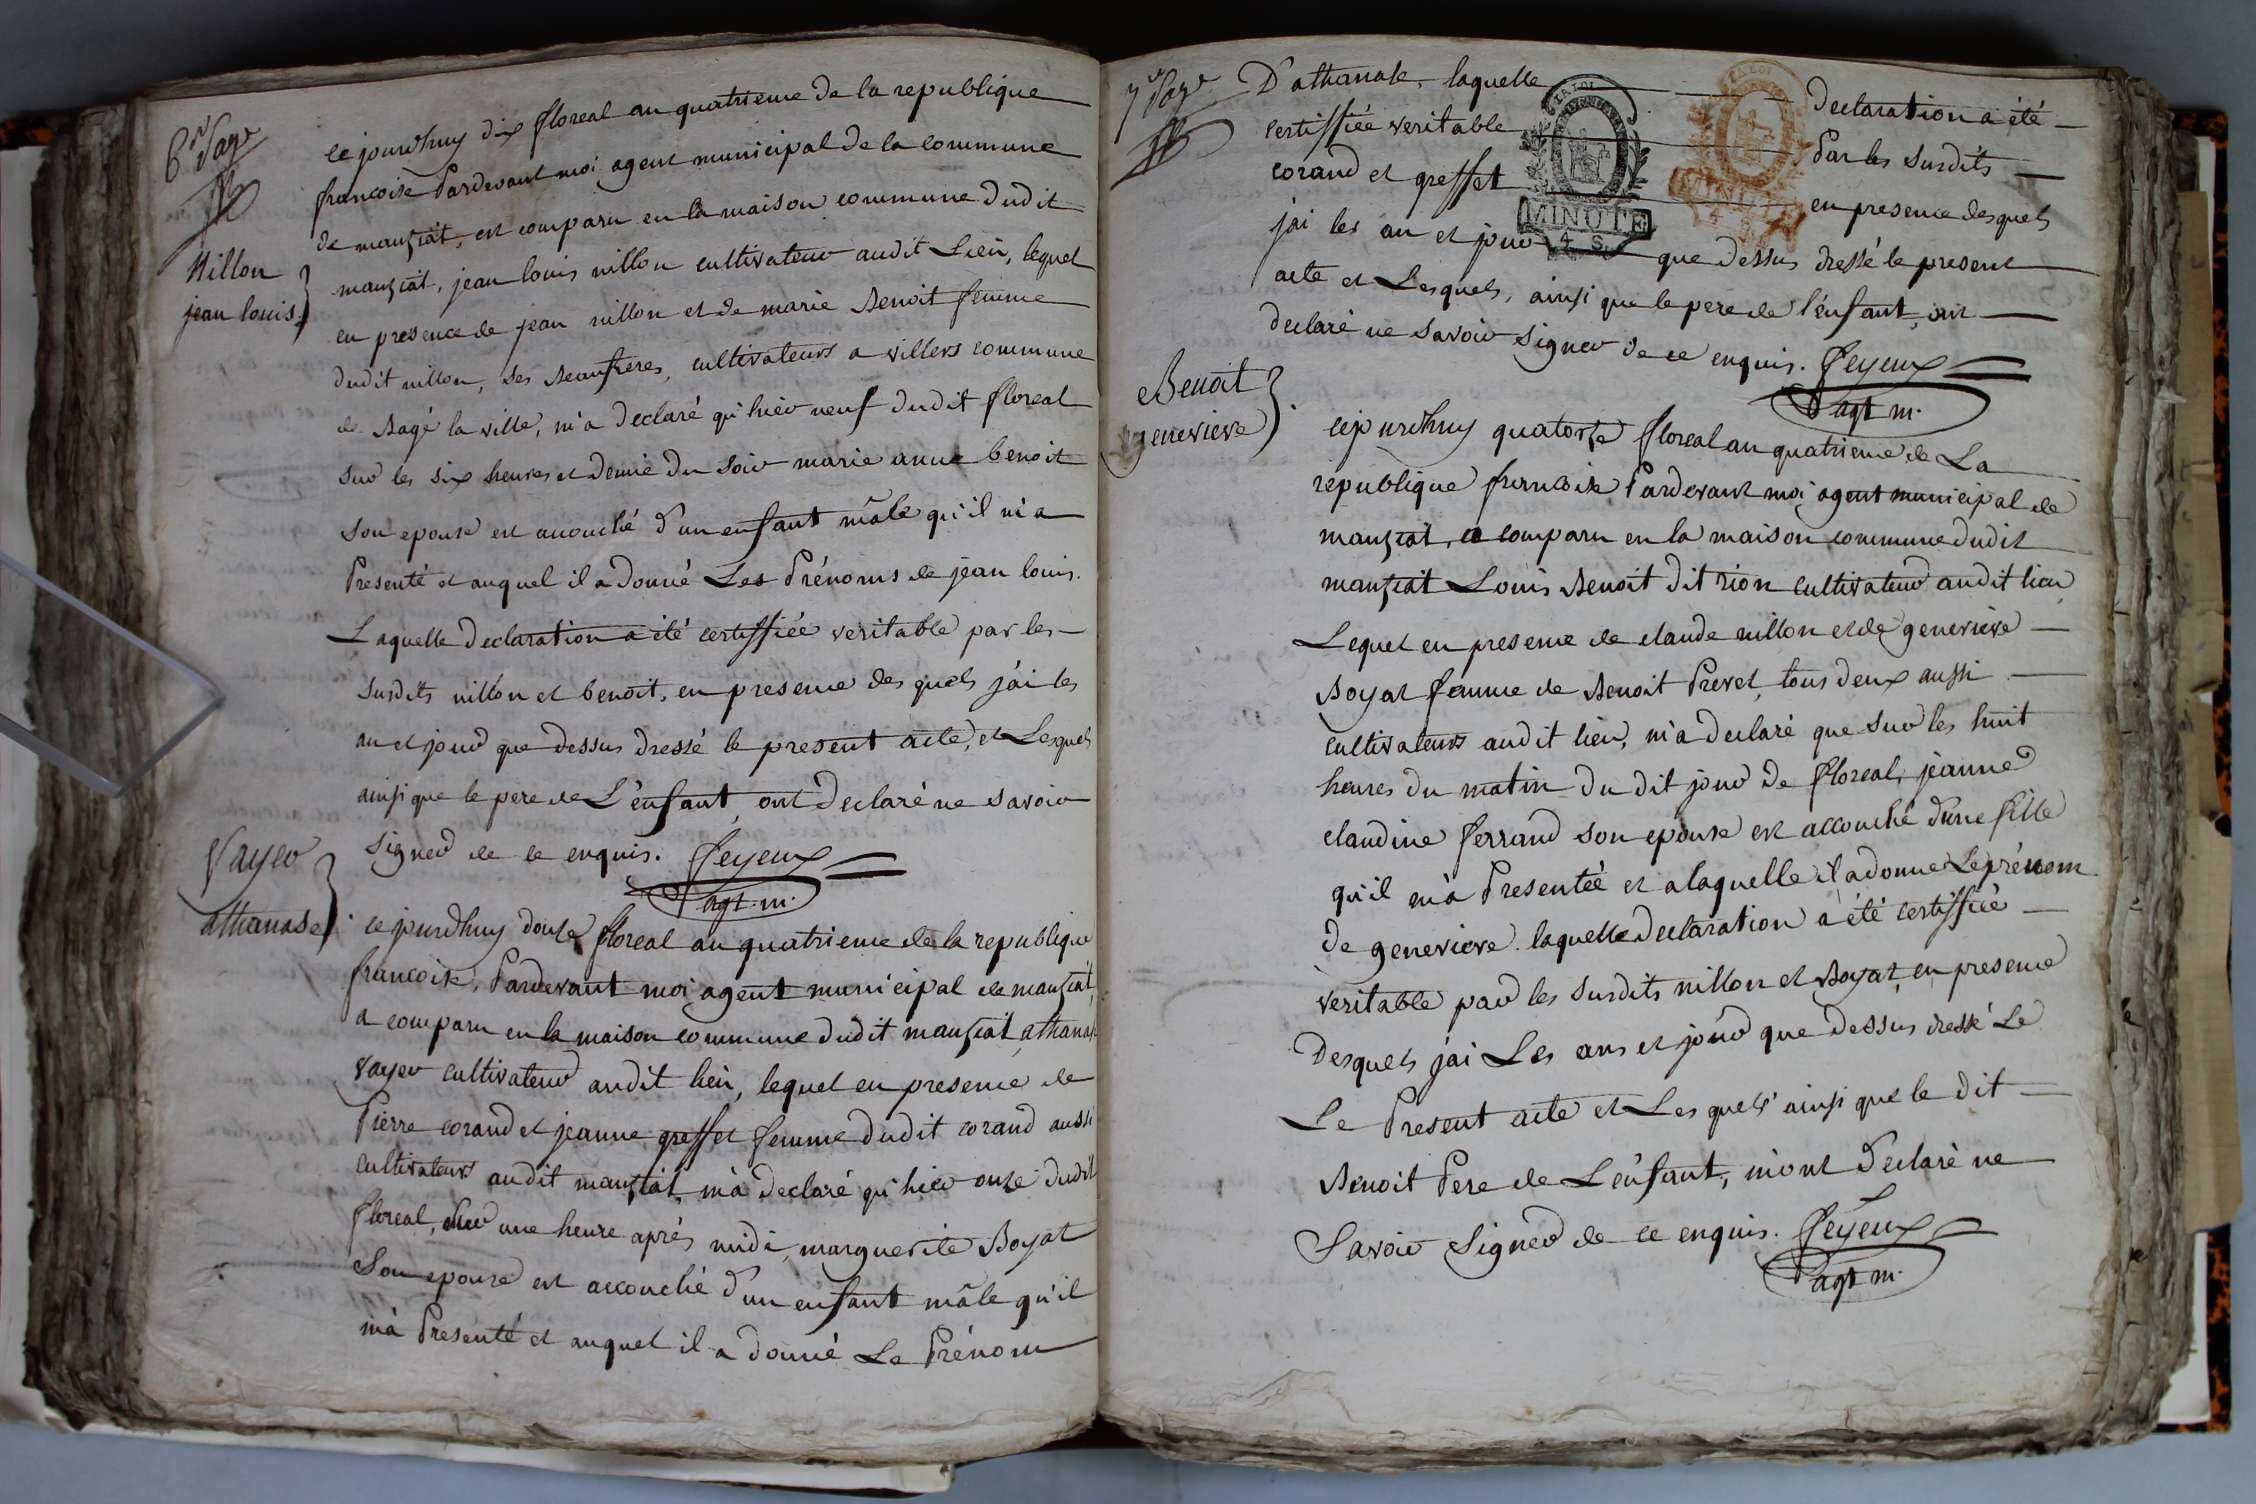 6e page
Nillon
jean louis.
ce jourdhuy dix floreal an quatrieme de la republique
francoise Pardevant moi agent municipal de la commune
de manziat, est comparu en la maison commune dudit
manziat, jean louis nillon cultivateur audit Lieu, lequel
en presence de jean nillon et de marie Benoit femme
dudit nillon, ses Beaufreres, cultivateurs a villers commune
de Bagé la ville, m'a declaré qu'hier neuf dudit floreal
sur les six heures et demie du soir marie anne benoit
son epouse est accouché d'un enfant mâle qu'il m'a
Presenté et auquel il a donné Les Prénoms de jean louis.
Laquelle declaration a été certiffiée veritable par les
susdits nillon et benoit, en presence des quels j'ai les
an et jour que dessus dressé le present acte, et Lesquels
ainsi que le pere de L'enfant, ont declaré ne savoir
signer de ce enquis. feyeux
agt m.
Vayer
athanase
ce jourdhuy douze floreal an quatrieme de la republique
francoise, Pardevant moi agent municipal de manziat,
a comparu en la maison commune dudit manziat, athanase
vayer cultivateur audit lieu, lequel en presence de
Pierre corand et jeanne greffet femme dudit corand aussi
cultivateurs audit manziat, m'a declaré qu'hier onze dudit
floreal, sur une heure aprés midi, marguerite Boyat
Son epouse est accouché d'un enfant mâle qu'il
m'a Presenté et auquel il a donné Le Prénom
7e page
D'athanase, laquelle declaration a été
certiffiée veritable Par les susdits
corand et greffet en presence desquels
MINUTE
4 S.
j'ai les an et jour que dessus dressé le present
acte et Lesquels, ainsi que le pere de l'enfant, ont
declaré ne savoir signer de ce enquis. feyeux
agt m.
Benoit
genevieve
cejourdhuy quatorze floreal an quatrieme de La
republique francoise Pardevant moi agent municipal de
manziat, a comparu en la maison commune dudit
manziat Louis Benoit dit rion cultivateur audit lieu,
Lequel en presence de claude nillon et de genevieve
Boyat femme de Benoit Prevel, tous deux aussi
cultivateurs audit lieu, m'a declaré que sur les huit
heures du matin du dit jour de floreal, jeanne
claudine ferrand son epouse est accouché d'une fille
qu'il m'a Presentée et a laquelle il a donné Le prénom
de genevieve. laquelle declaration a été certiffiée
veritable par les susdits nillon et Boyat, en presence
Desquels j'ai Les ans et jour que dessus dressé Le
Le Present acte et Les quels ainsi que le dit
Benoit Pere de L'enfant, m'ont declaré ne
Savoir signer de ce enquis. feyeux
agt m.